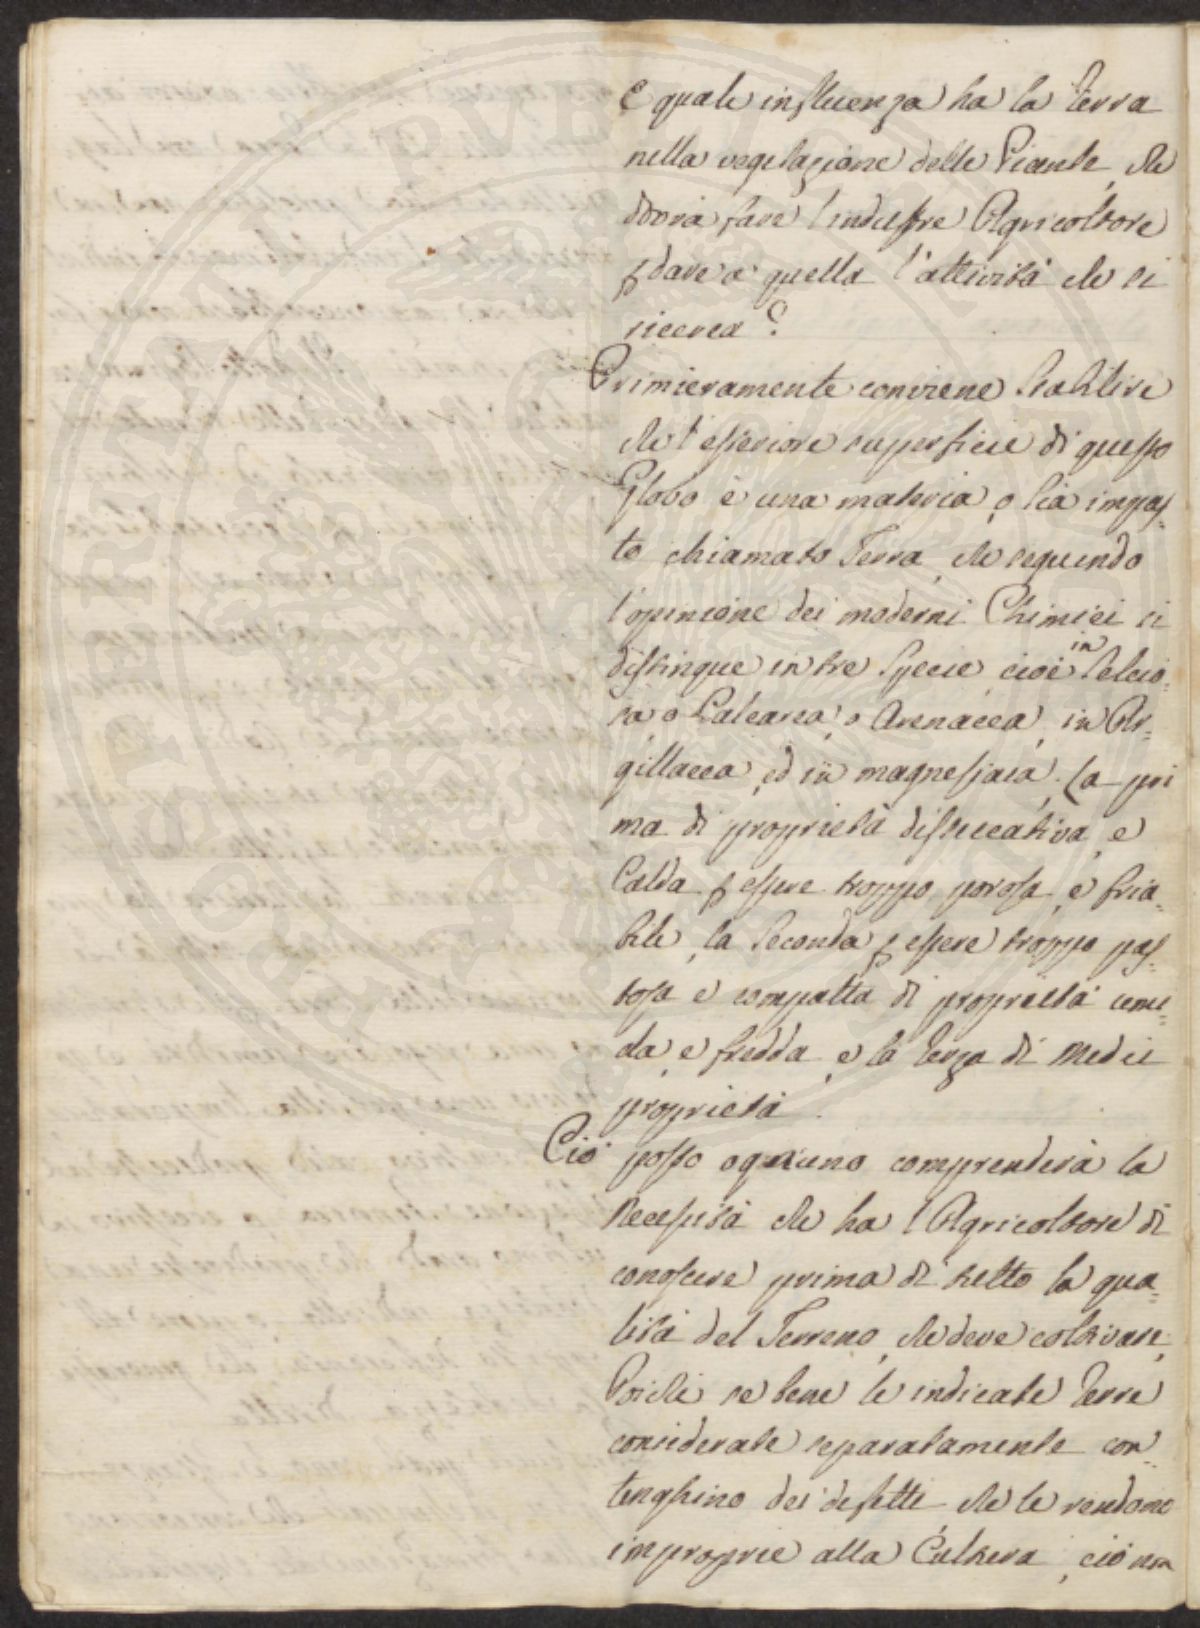 e quale influenza ha la Terra
nella vegetazione delle Piante, che
dovrà fare l'industre Agricoltore
p dare a quella l'attività che si
ricerca?
Primieramente conviene Stabilire
che l'esteriore superficie di questo
Globo è una materia, o sia impas=
to chiamato Terra, che seguendo
l'opinione dei moderni Chimici si
distingue in tre Specie, cioè in Selcio=
sa, o Calcarea, o Arenacea, in Ar=
gillacea, ed in magnesiaca. La pri
ma di proprietà disseccativa, e
Calda p essere troppo porosa, e fria=
bile, la Seconda p essere troppo pas=
tosa e compatta di proprietà umi=
da, e fredda, e la Terza di Medie
proprietà.
Ciò posto ognuno comprenderà la
Necessità che ha l'Agricoltore di
conoscere prima di tutto la qua=
lità del Terreno, che deve coltivare,
Poichè se bene le indicate Terre
considerate separatamente con=
tenghino dei difetti che le rendono
improprie alla Cultura, ciò non